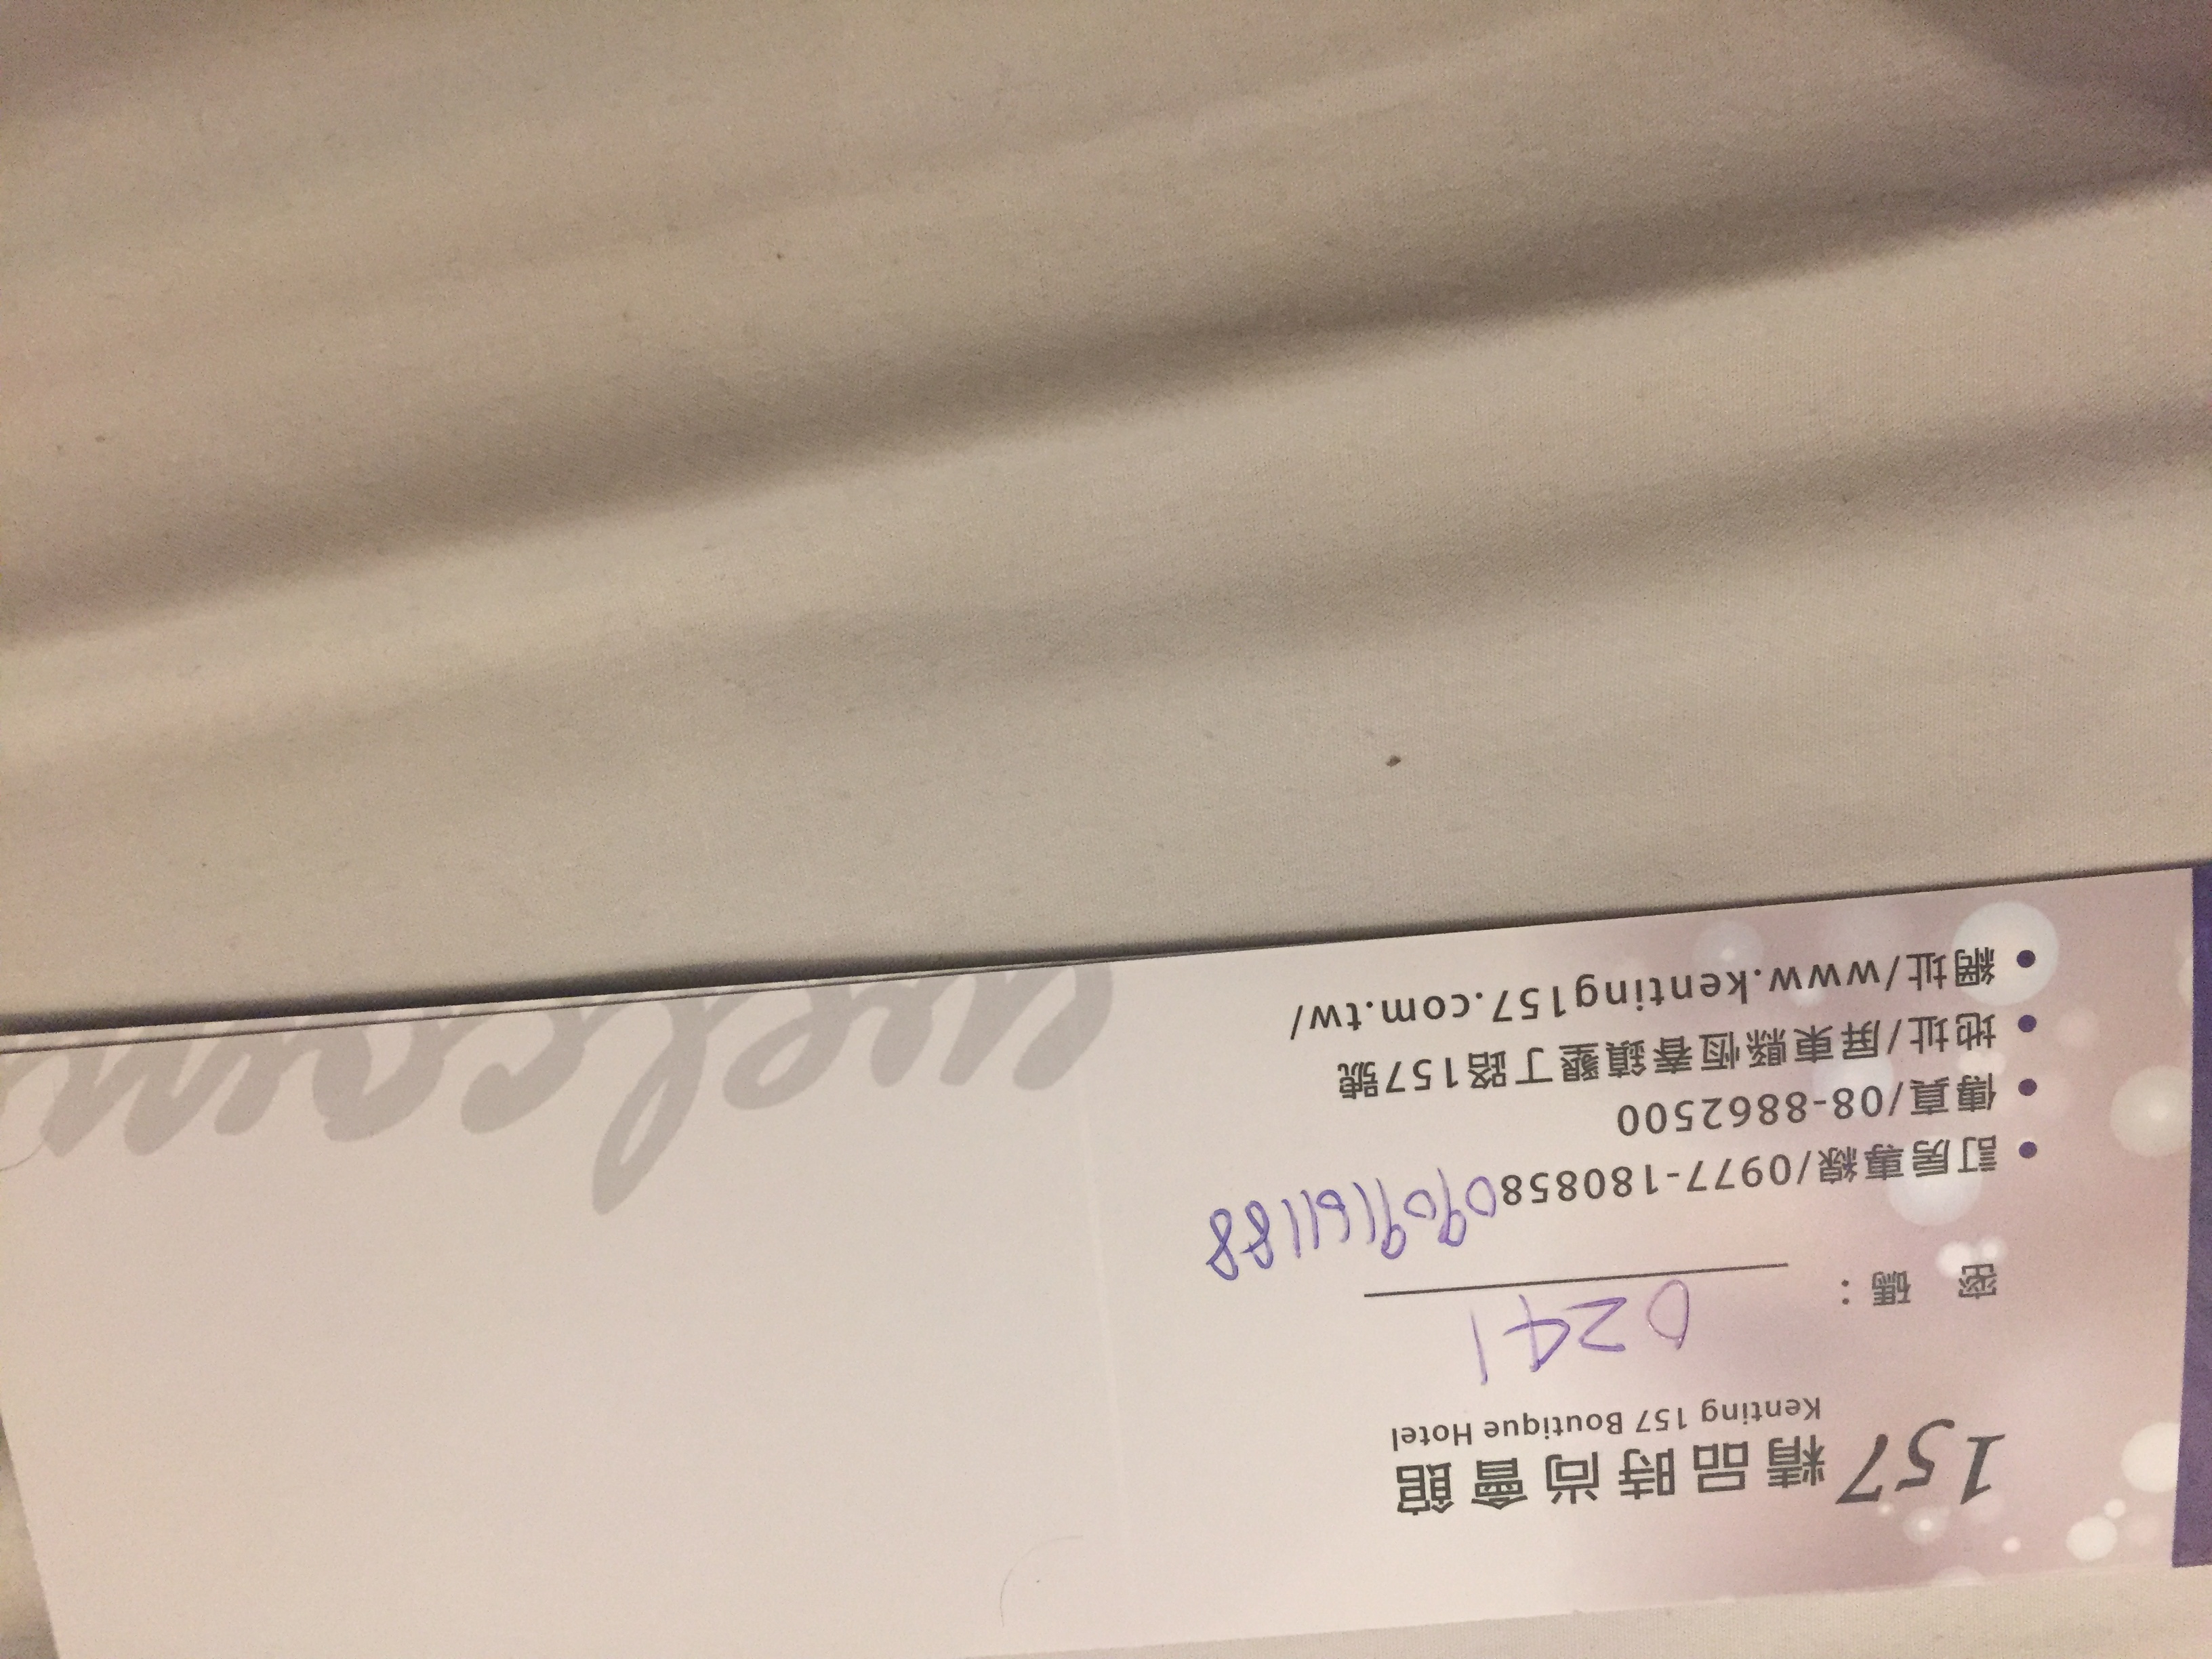 157 精品時尚會館
Kenting 157 Boutique Hotel
密 碼： 0241
• 訂房專線/0977-180858 0909161188
• 傳真/08-8862500
• 地址/屏東縣恆春鎮墾丁路157號
• 網址/www.kenting157.com.tw/
welcom